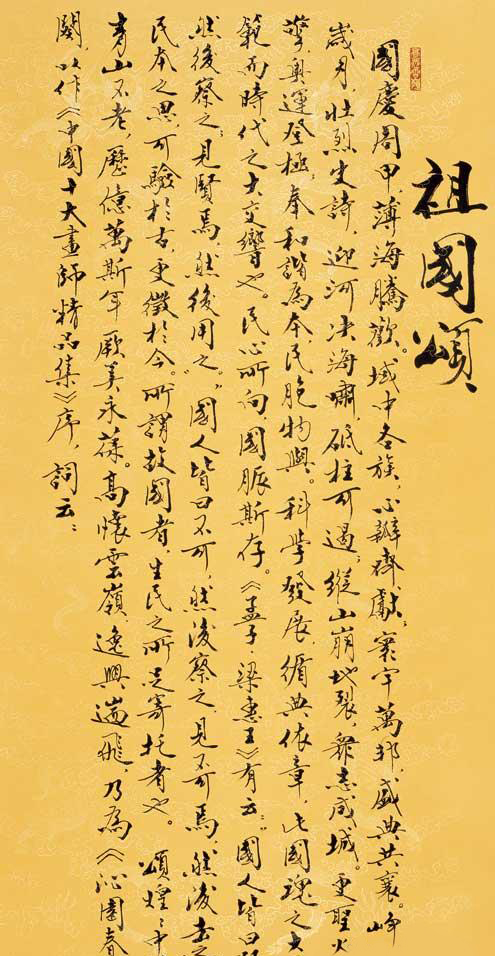 祖國頌
國慶周甲,薄海騰歡。域中各族,心瓣齊獻;寰宇萬邦,盛典共襄。崢
歲月,壯烈史詩,迎河决海嘯,砥柱可遏;縱山崩地裂,衆志成城。更聖火
擎,奥運登極;奉和諧為本,民胞物與。科學發展,循典依章,此國魂之大
範而時代之大交響也。民心所向,國脈斯存。《孟子·梁惠王》有云:“國人皆曰
然後察之;見賢焉,然後用之。”“國人皆曰不可,然後察之,見不可焉,然後去之
民本之思可驗於古,更徵於今。所謂故國者,生民之所足寄托者也。頌煌煌中
青山不老,歷億萬斯年,厥美永葆。高懷雲嶺,逸興遄飛,乃為《沁園春
闋,以作《中國十大畫師精品集》序,詞云: